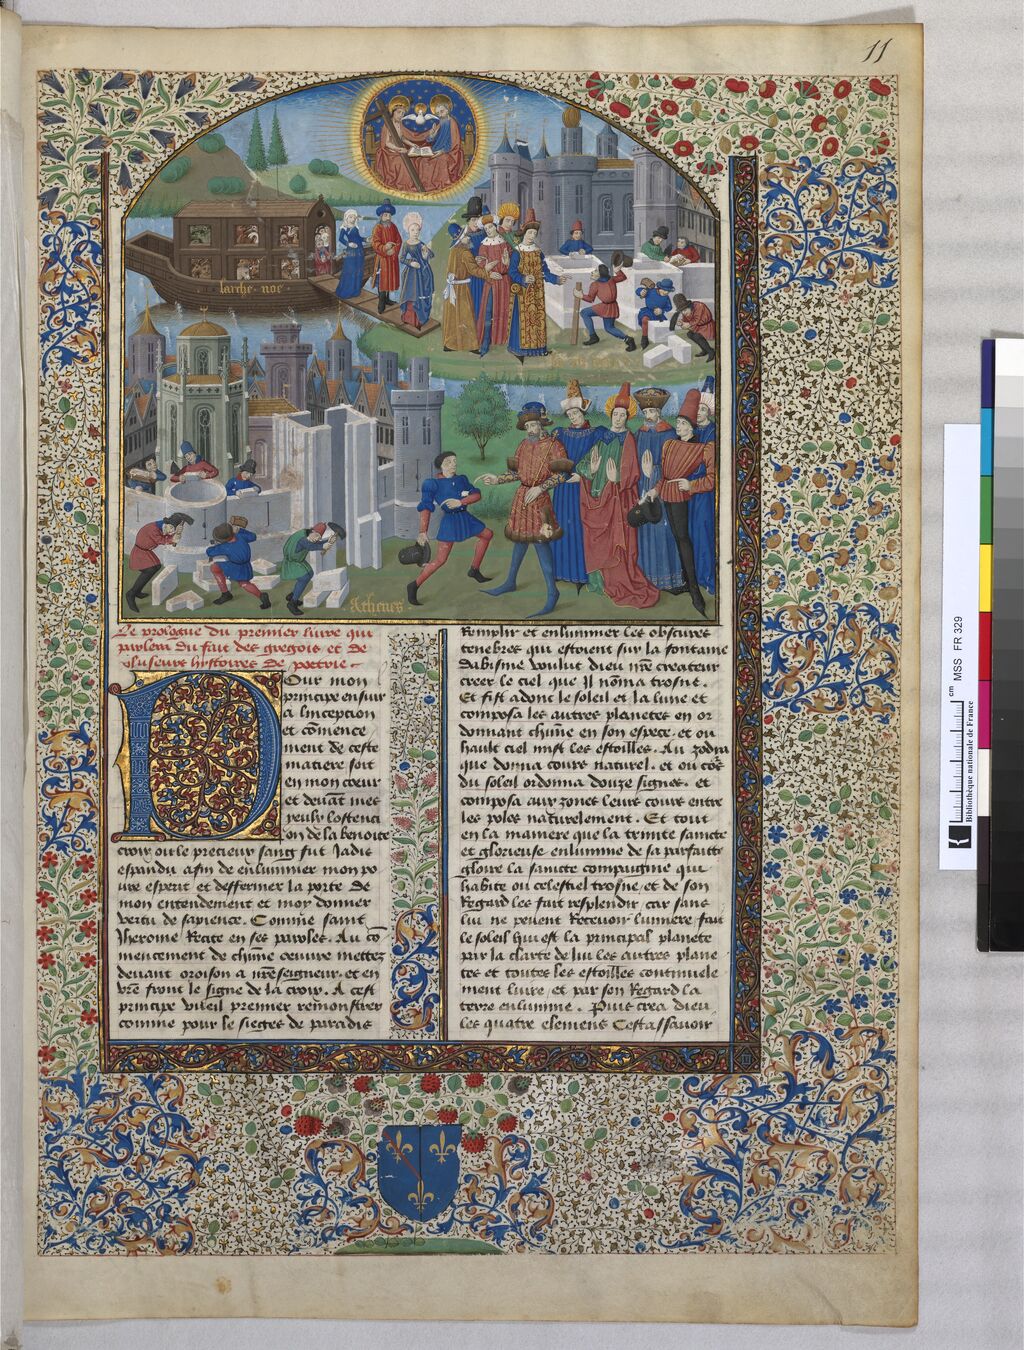 11
larche noe
Athenes
Le prologue du premier liure qui
parlera du fait des gregois et de
plusieurs histoires de poetrie
Pour mon
principe ensuir
a linception
et cõmence
ment de ceste
matiere soit
en mon cœur
et deuãt mes
yeulx lostenci
on de la benoite
croix ou le precieux sang fut Jadis
espandu afin de enluminer mon po
ure esperit et deffermer la porte de
mon entendement et moy donner
vertu de sapience. Comme saint
Jherome Recite en ses paroles. Au cõ
mencement de chũne oeuure mettez
deuant oroison a nr̃e seigneur. et en
vr̃e front le signe de la croix. A cest
principe vueil premier remonstrer
comme pour les sieges de paradis
Remplir et enluminer les obscures
tenebres qui estoient sur la fontaine
dabisme voulut dieu nr̃e createur
creer le ciel que Il nõma trosne.
Et fist adonc le soleil et la lune et
composa les autres planetes en or
donnant chũne en son espece. et ou
hault ciel mist les estoilles. Au zodia
que donna cours naturel. et ou cõrs
du soleil ordonna douze signes. et
composa aux zones leurs cours entre
les poles naturelement. Et tout
en la maniere que la trinite saincte
et glorieuse enlumine de sa parfaicte
gloire la saincte compaignie qui
habite ou celestiel trosne. et de son
Regard les fait resplendir car sans
lui ne peuent Receuoir lumiere. fait
le soleil qui est la principal planete
par la clarte de lui les autres plane
tes et toutes les estoilles continuele
ment luire. et par son Regard la
terre enlumine. Puis crea dieu
les quatre elemens Cestassauoir
cm
MSS FR 329
Bibliothèque nationale de France